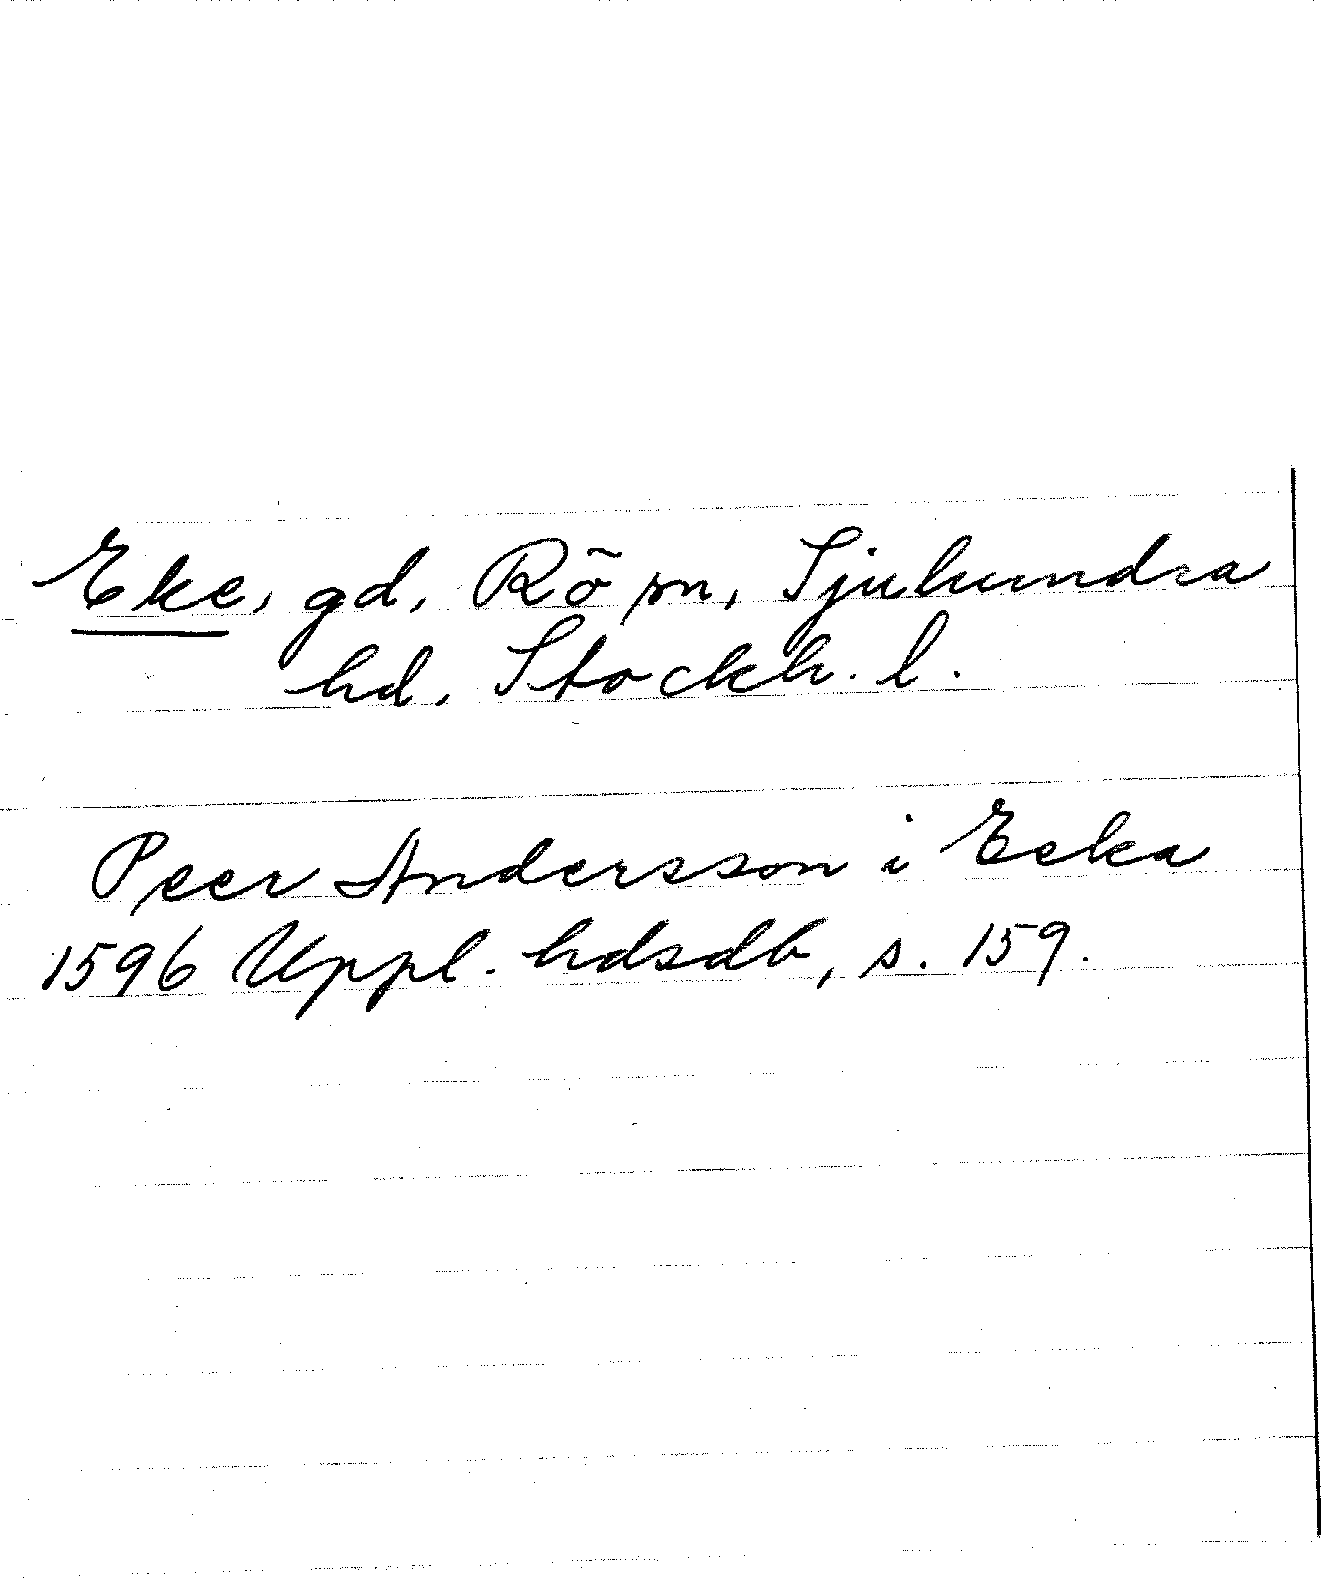 Eke, gd, Rö sn, Sjuhundra
hd, Stockh. l.
Peer Andersson i Ecka
1596 Uppl. hdsdb, s. 159.